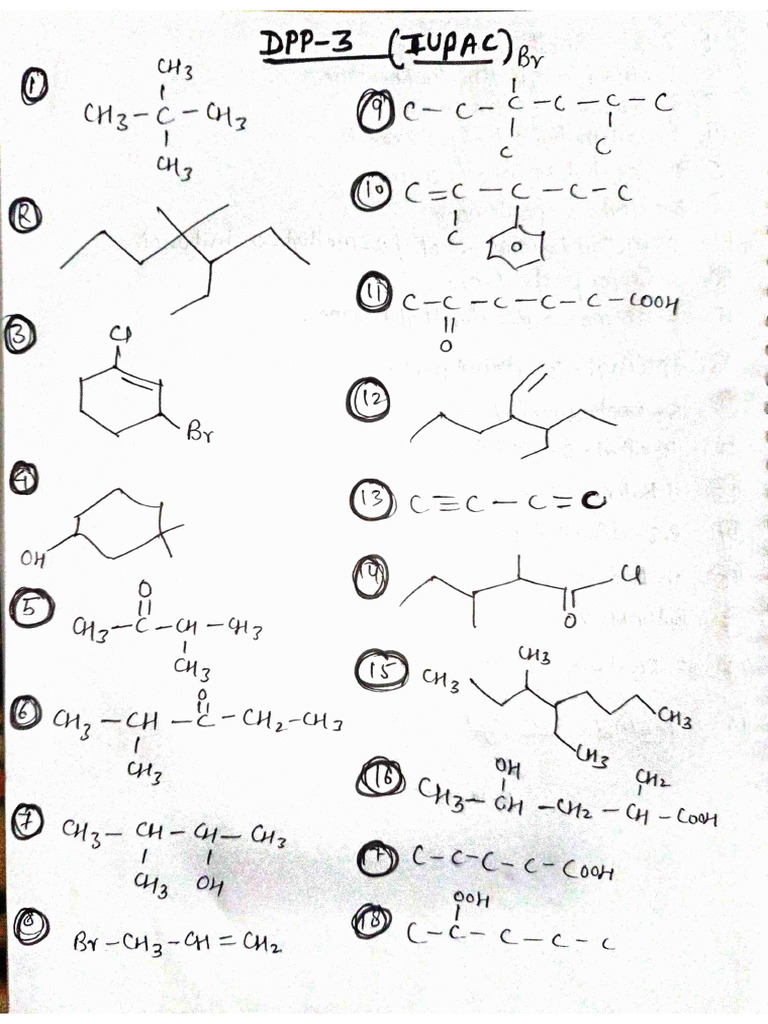 DPP-3 (IUPAC)
1
CH3
CH3 - C - CH3
CH3
2
3
Cl
Br
4
OH
5
O
CH3 - C - CH - CH3
CH3
6
O
CH3 - CH - C - CH2 - CH3
CH3
7
CH3 - CH - CH - CH3
CH3 OH
8
Br - CH3 - CH = CH2
9
Br
C - C - C - C - C - C
C C
10
C = C - C - C - C
C
11
C - C - C - C - C - COOH
O
12
13
C ≡ C - C = C
14
Cl
O
15
CH3
CH3
CH3
CH3
16
OH CH2
CH3 - CH - CH2 - CH - COOH
17
C - C - C - C - COOH
18
OOH
C - C - C - C - C